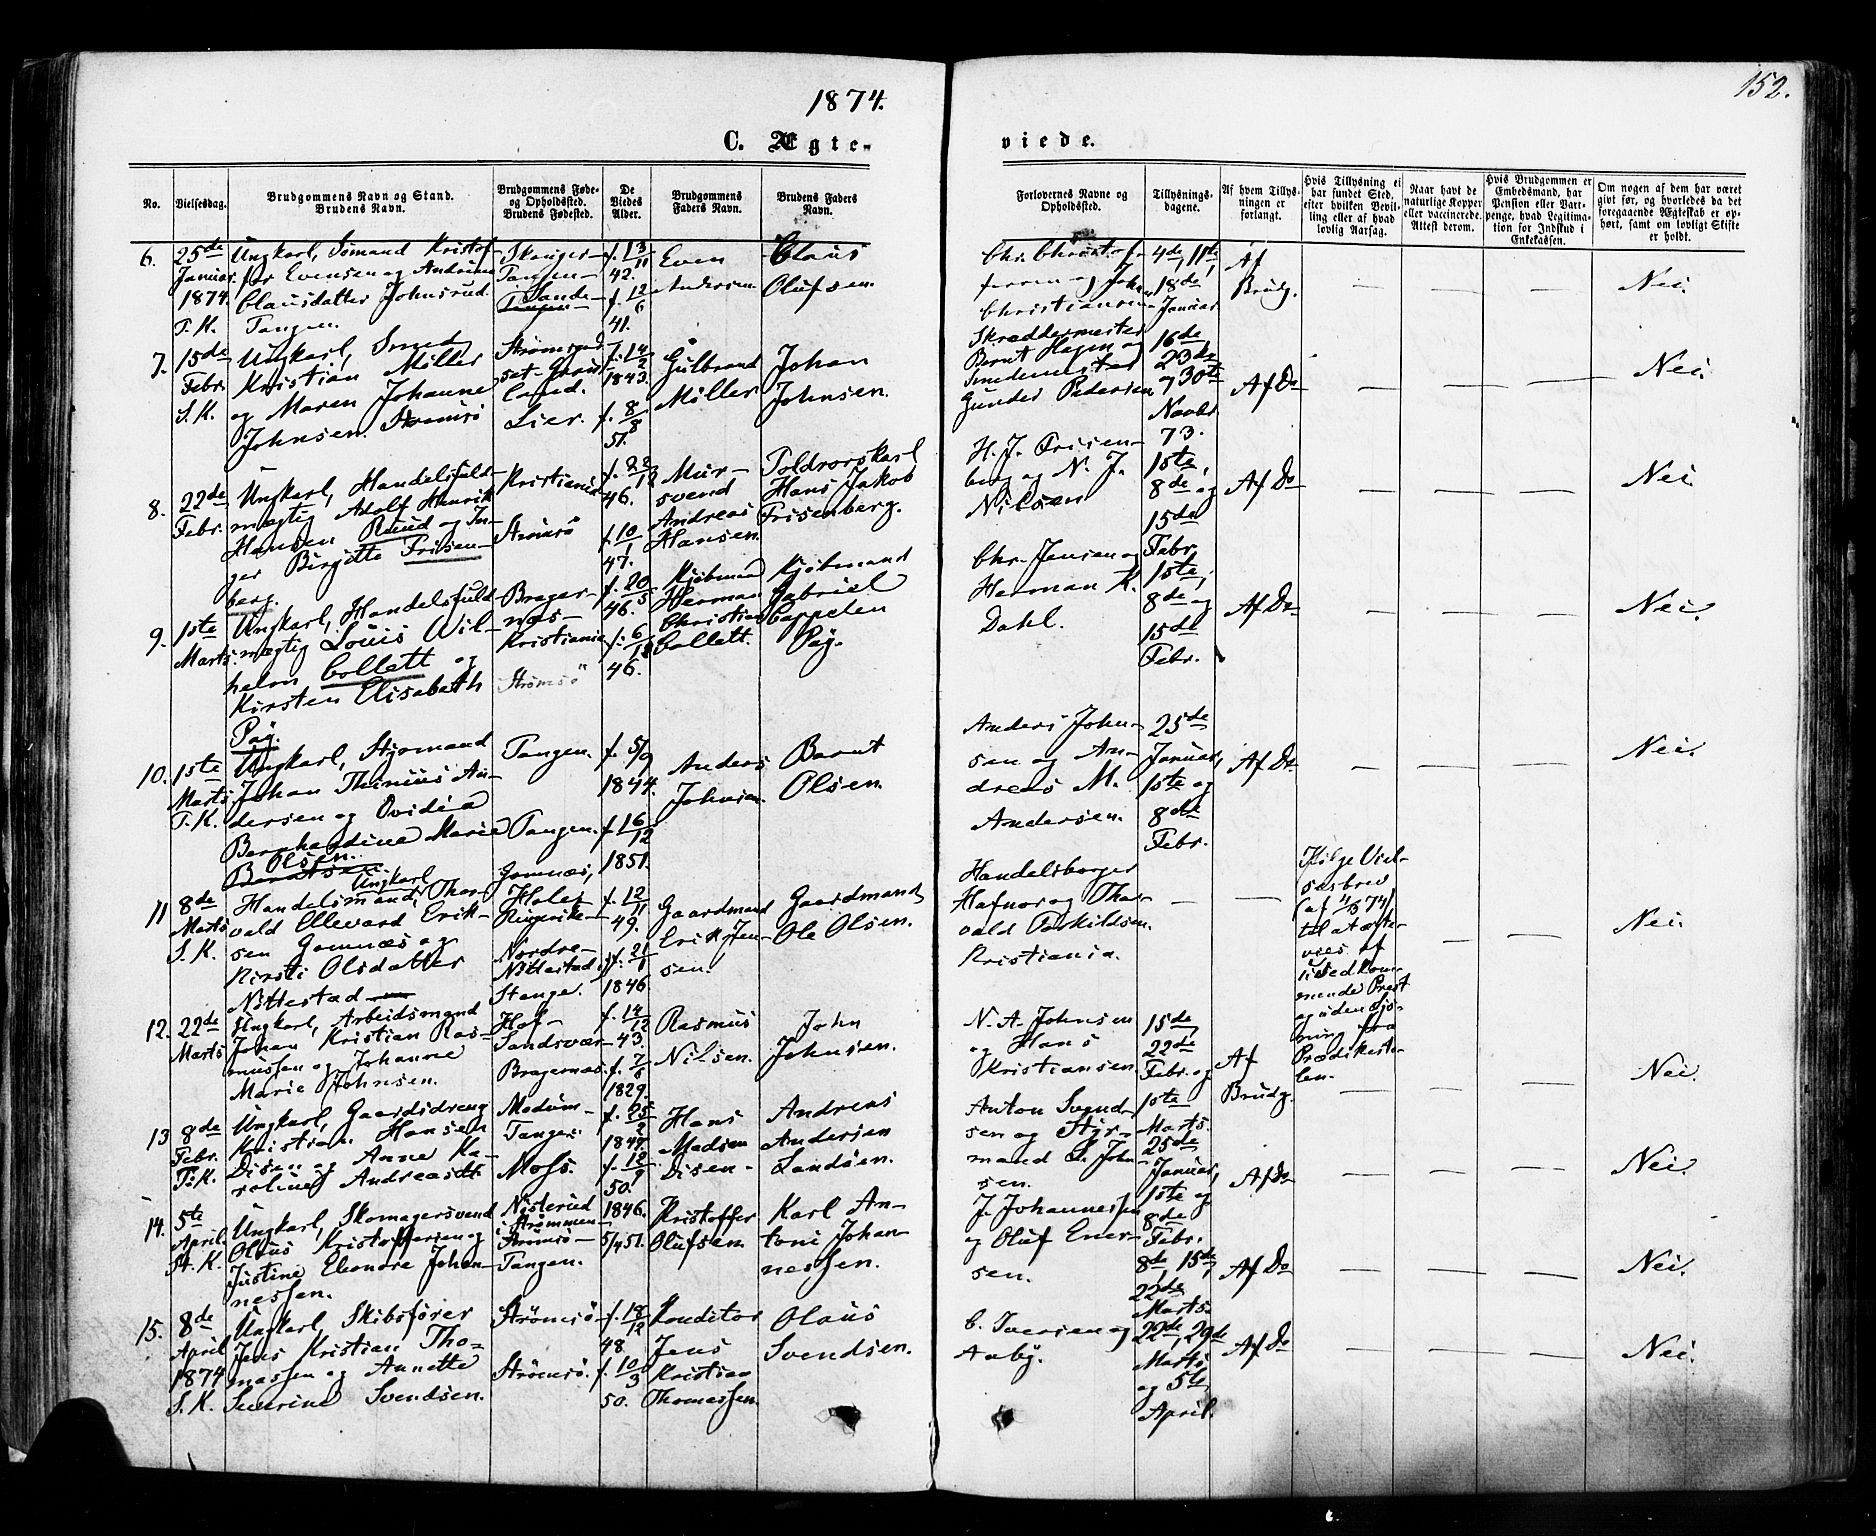 1874.
152.
C. Ægte-
viede.
No.
Vielsesdag.
Brudgommens Navn og Stand.
Brudens Navn.
Brudgommens Føde-
og Opholdssted.
Brudens Fødested.
De
Viedes
Alder.
Brudgommens
Faders Navn.
Brudens Faders
Navn.
Forlovernes Navne og
Opholdssted.
Tillysnings-
dagene.
Af hvem Tillys-
ningen er
forlangt.
Hvis Tillysning ei
har fundet Sted,
efter hvilken Bevil-
ling eller af hvad
lovlig Aarsag.
Naar havt de
naturlige Kopper
eller vaccinerede.
Attest derom.
Hvis Brudgommen er
Embedsmand, har
Pension eller Vart-
penge, hvad Legitima-
tion for Indskud i
Enkekassen.
Om nogen af dem har været
gift før, og hvorledes da det
foregaaende Ægteskab er op-
hørt, samt om lovligt Skifte
er holdt.
6.
25de
Januar
1874.
T. K.
Ungkarl, Sømand Kristof-
fer Evensen og Andrine
Clausdatter Johnsrud.
Tangen.
Skouger-
Tangen-
Sande-
Tangen-
f. 13/11
42.
f. 12/6
41.
Even
Andersen
Claus
Olufsen.
Chr. Christof-
fersen og Johan
Christiansen
4de, 11te
18de,
Januar
Af
Brudg.
Nei.
7.
15de
Febr.
S. K.
Ungkarl, Smed
Kristian Møller
og Maren Johanne
Johnsen. Strømsø
Strømsgod
set- Grøn
land.
Lier.
f. 14/2
1843.
f. 8/8
51.
Gulbrand
Møller
Johan
Johnsen.
Skræddermester
Bernt Hagen og
Smedemester
Gunder Pedersen
16de,
23de
og 30te
Novbr
73.
Af Do
Nei.
8.
22de
Febr.
Ungkarl, Handelsfuld-
mægtig Adolf Henrik
Hansen Ruud og In-
ger Birgitte Frisen-
berg.
Kristiania
Strømsø
f. 22/12
46.
f. 10/1
47.
Mur-
svend
Andreas
Hansen.
Toldrorskarl
Hans Jakob
Frisenberg.
H. J. Frisen-
berg og N. J.
Nilsen
1ste,
8de og
15de
Febr.
Af Do
Nei.
9.
1ste
Marts.
Ungkarl, Handelsfuld
mægtig Louis Wil-
helm Collett og
Kirsten Elisabeth
Pay.
Brager-
næs-
Kristiania
Strømsø
f. 20/5
46.
f. 6/12
46.
Kjøbmand
Herman
Christian
Collett.
Kjøbmand
Gabriel
Cappelen
Pay.
Chr. Jensen og
Herman K.
Dahl.
1ste,
8de og
15de
Febr.
Af Do
Nei.
10.
1ste
Marts
T. K.
Ungkarl, Styrmand
Johan Thinius An-
dersen og Ovidia
Bernhardine Marie
Olsen.
Berntsen.
Tangen.
Tangen.
f. 5/9
1844.
f. 16/12
1851.
Anders
Johnsen.
Bernt
Olsen.
Anders John-
sen og An-
dreas M.
Andersen.
25de
Januar,
1ste og
8de
Febr.
Af Do
Nei.
11
8de
Marts
S. K.
Ungkarl
Handelsmand, Thor-
vald Ellevard Erik-
sen Gomnæs og
Kirsti Olsdatter
Nittestad
Gomnæs,
Hole,
Ringerike
Nordre-
Nittestad i
Stange.
f. 12/11
49.
f. 21/1
1846.
Gaardmand
Erik Jen-
sen.
Gaardmand
Ole Olsen.
Handelsborger
Hafnor og Thor-
vald Torkildsen.
Kristiania.
Ifølge Viel-
sesbrev
til at ægte-
vies af
Uvedkom-
mende Prest
og uden Lys-
ning fra
Prædikesto-
len.
Nei.
12.
22de
Marts
Ungkarl, Arbeidsmand
Johan Kristian Ras-
mussen og Johanne
Marie Johnsen.
Hof-
Sandsvær-
Bragernæs.
f. 14/12
43.
f. 7/6
1829.
Rasmus
Nilsen.
John
Johnsen.
N. A. Johnsen
og Hans
Kristiansen.
15de
22de
Febr. og
1ste
Marts.
Af
Brudg.
Nei.
13
8de
Febr.
T. K.
Ungkarl, Gaardsdreng
Kristian Hansen
Disen og Anne Ka-
roline Andreasdt
Modum-
Tangen
Moss.
f. 25/2
1847.
f. 12/9
50.
Hans
Madsen
Disen-
Andreas
Andersen
Landsen.
Anton Svend-
sen og Styr-
mand L. John-
sen.
25de,
Januar,
1ste og
8de
Febr.
Af Do
Nei.
14.
5te
April.
St. K.
Ungkarl, Skomagersvend
Olaus Kristoffersen og
Justine Eleonore Johan-
nessen.
Nisterud
i Strømmen-
Strømsø-
Tangen.
1846.
5/4 51.
Kristoffer
Olufsen.
Karl An-
toni Johan-
nessen.
J. Johannessen
og Oluf Ener-
sen.
8de, 15de,
22de
Marts.
Af Do
Nei.
15.
8de
April
1874
S. K.
Ungkarl, Skibsfører
Jens Kristian Tho-
massen og Annette
Severine Svendsen.
Strømsø-
Strømsø.
f. 18/12
48
f. 10/3
50.
Konditor
Jens
Kristian
Thomassen.
Olaus
Svendsen.
C. Iversen og
Aaby.
22de, 29de
Marts
og 5te
April.
Af Do
Nei.